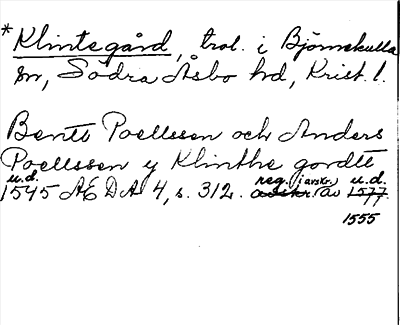 *Klintegård, trol. i Björnekulla
sn, Södra Åsbo hd, Krist. l.
Bentt Poellssen och Anders
Poellssen y Klinthe gordtt
u.d. reg. i avskr. u.d.
1545 ÆDA 4, s. 312. av 1577.
1555